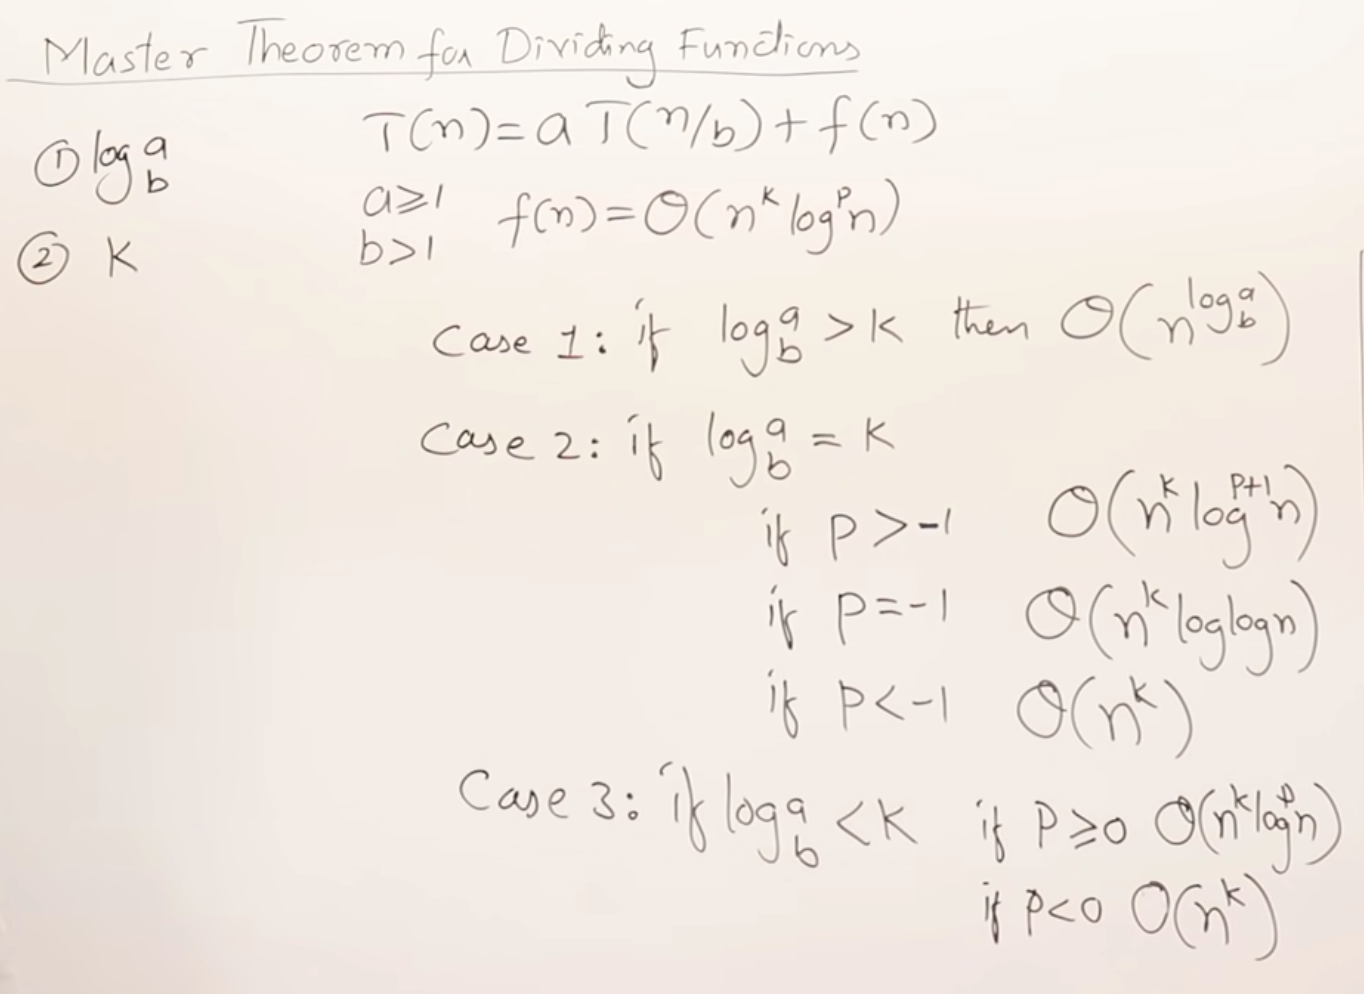 Master Theorem for Dividing Functions
T(n) = a T(n/b) + f(n)
① log_b a
a ≥ 1 f(n) = θ(n^k log^p n)
b > 1
② K
Case 1: if log_b a > K then θ(n^(log_b a))
Case 2: if log_b a = K
if P > -1 θ(n^k log^(P+1) n)
if P = -1 θ(n^k loglogn)
if P < -1 θ(n^k)
Case 3: if log_b a < K if P ≥ 0 θ(n^k log^p n)
if P < 0 O(n^k)